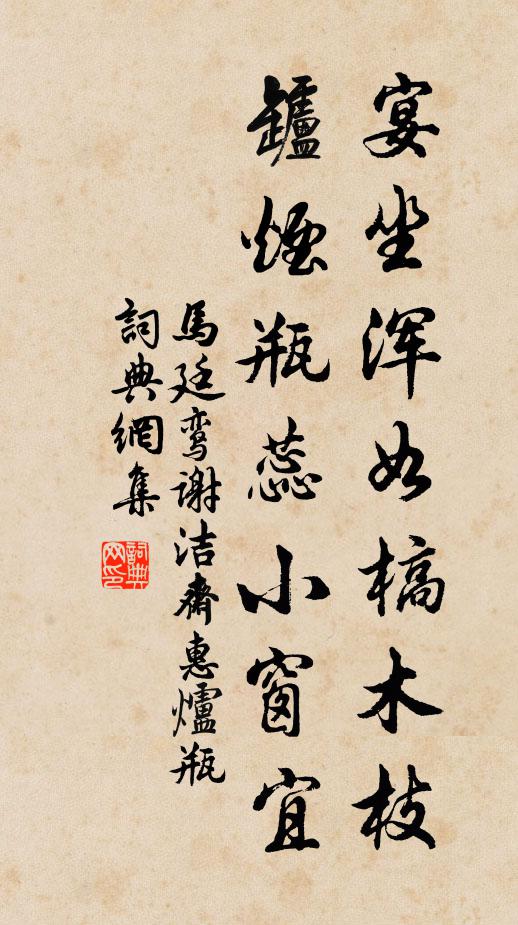 宴坐浑如槁木枝
鑪煙瓶蕊小窗宜
馬廷鸾谢洁齋惠爐瓶
詞典網集
詞典网印